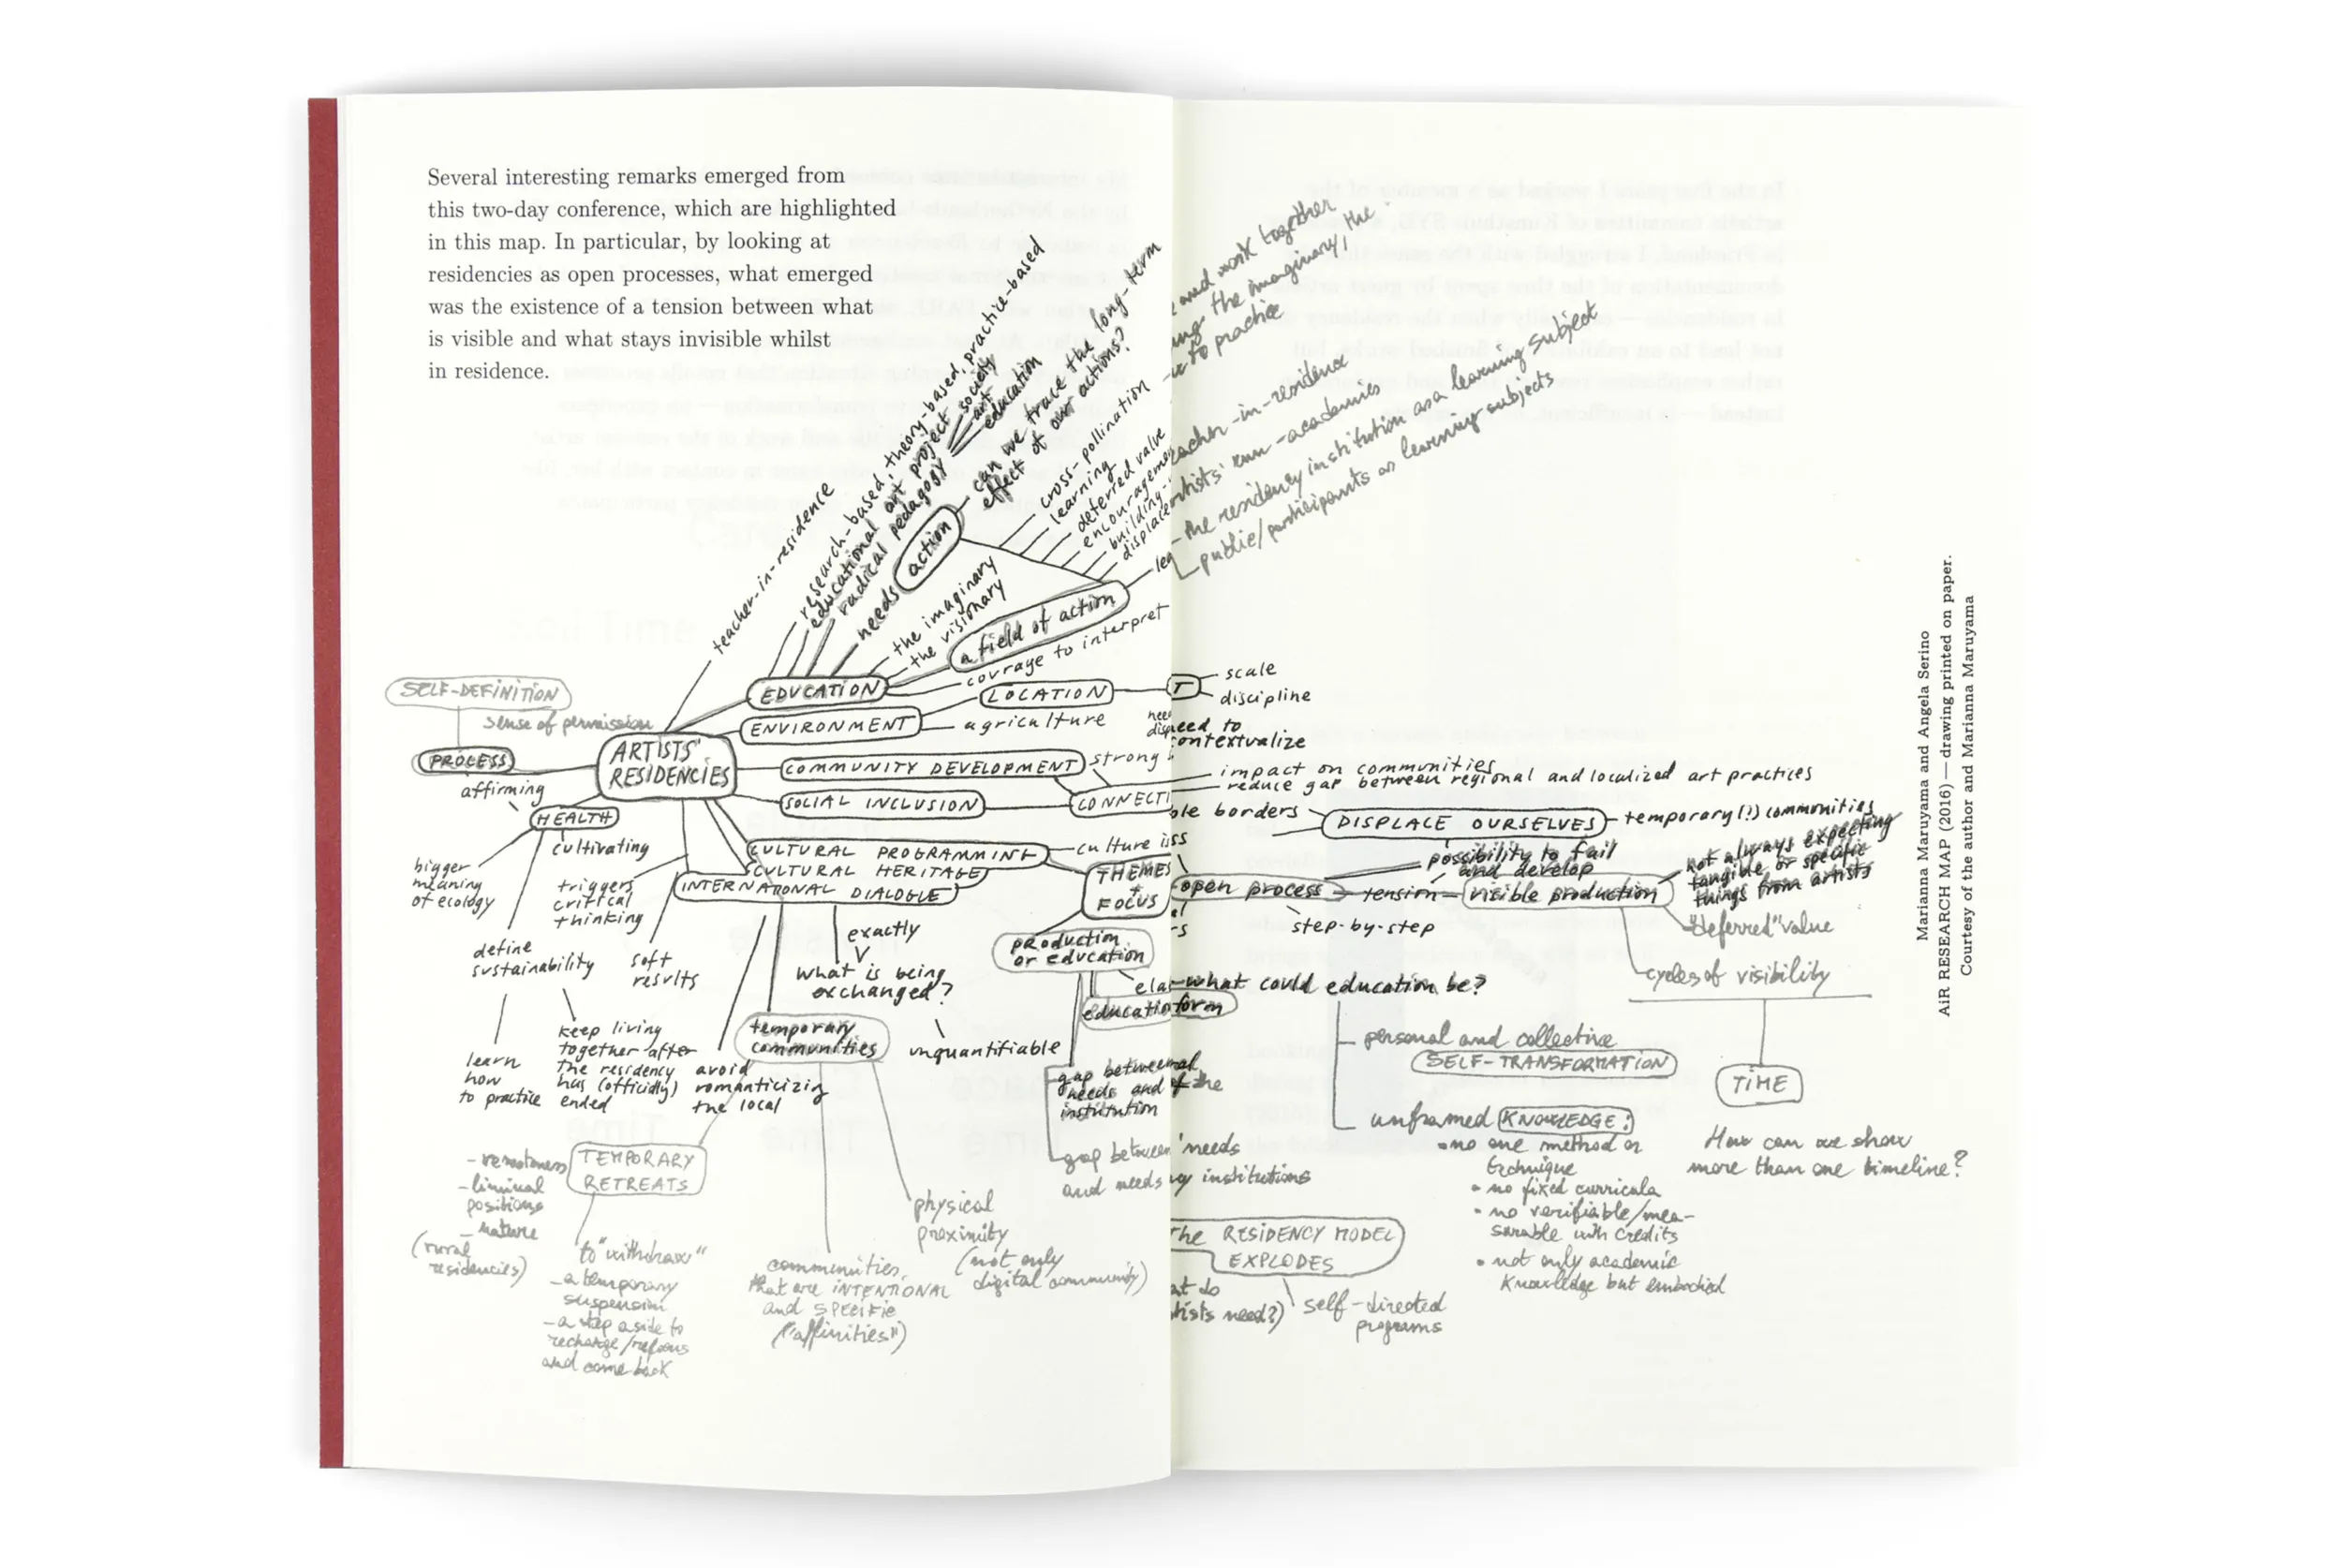 Several interesting remarks emerged from
this two-day conference, which are highlighted
in this map. In particular, by looking at
residencies as open processes, what emerged
was the existence of a tension between what
is visible and what stays invisible whilst
in residence.
teacher-in-residence
research-based, theory-based, practice-based
educational art project
radical pedagogy
society
art
education
needs
action
can we trace the long-term
effect of our actions?
cross-pollination
learning
deferred value
building-
the imaginary
the visionary
a field of action
courage to interpret
EDUCATION
LOCATION
ENVIRONMENT
agriculture
SELF-DEFINITION
sense of permission
PROCESS
ARTISTS'
RESIDENCIES
affirming
HEALTH
COMMUNITY DEVELOPMENT
strong
SOCIAL INCLUSION
CONNECTI
CULTURAL PROGRAMMING
CULTURAL HERITAGE
INTERNATIONAL DIALOGUE
culture is
THEMES
+
FOCUS
cultivating
bigger
meaning
of ecology
triggers
critical
thinking
define
sustainability
soft
results
exactly
what is being
exchanged?
unquantifiable
production
or education
learn
how
to practice
keep living
together after
the residency
has (officially)
ended
avoid
romanticizing
the local
temporary
communities
gap between
needs and
institution
gap between
and needs
TEMPORARY
RETREATS
- remoteness
- liminal
positions
- nature
(rural
residencies)
to "withdraw"
- a temporary
suspension
- a step aside to
recharge/refocus
and come back
communities
that are INTENTIONAL
and SPECIFIC
("affinities")
physical
proximity
(not only
digital community)
and work together
the imaginary, the
to practice
-in-residence
artists' run-academies
the residency institution as a learning subject
public/participants as learning subjects
T
scale
discipline
need to
contextualize
impact on communities
reduce gap between regional and localized art practices
borders
DISPLACE OURSELVES
temporary(!) communities
possibility to fail
and develop
not always expecting
tangible or specific
things from artists
open process
tension
visible production
step-by-step
"deferred" value
cycles of visibility
what could education be?
form
personal and collective
SELF-TRANSFORMATION
unframed KNOWLEDGE:
• no one method or
technique
• no fixed curricula
• no verifiable/mea-
surable with credits
• not only academic
knowledge but embodied
TIME
How can we show
more than one timeline?
of the
needs
institutions
The RESIDENCY MODEL
EXPLODES
at do
tists need?)
self-directed
programs
Marianna Maruyama and Angela Serino
AiR RESEARCH MAP (2016) — drawing printed on paper.
Courtesy of the author and Marianna Maruyama